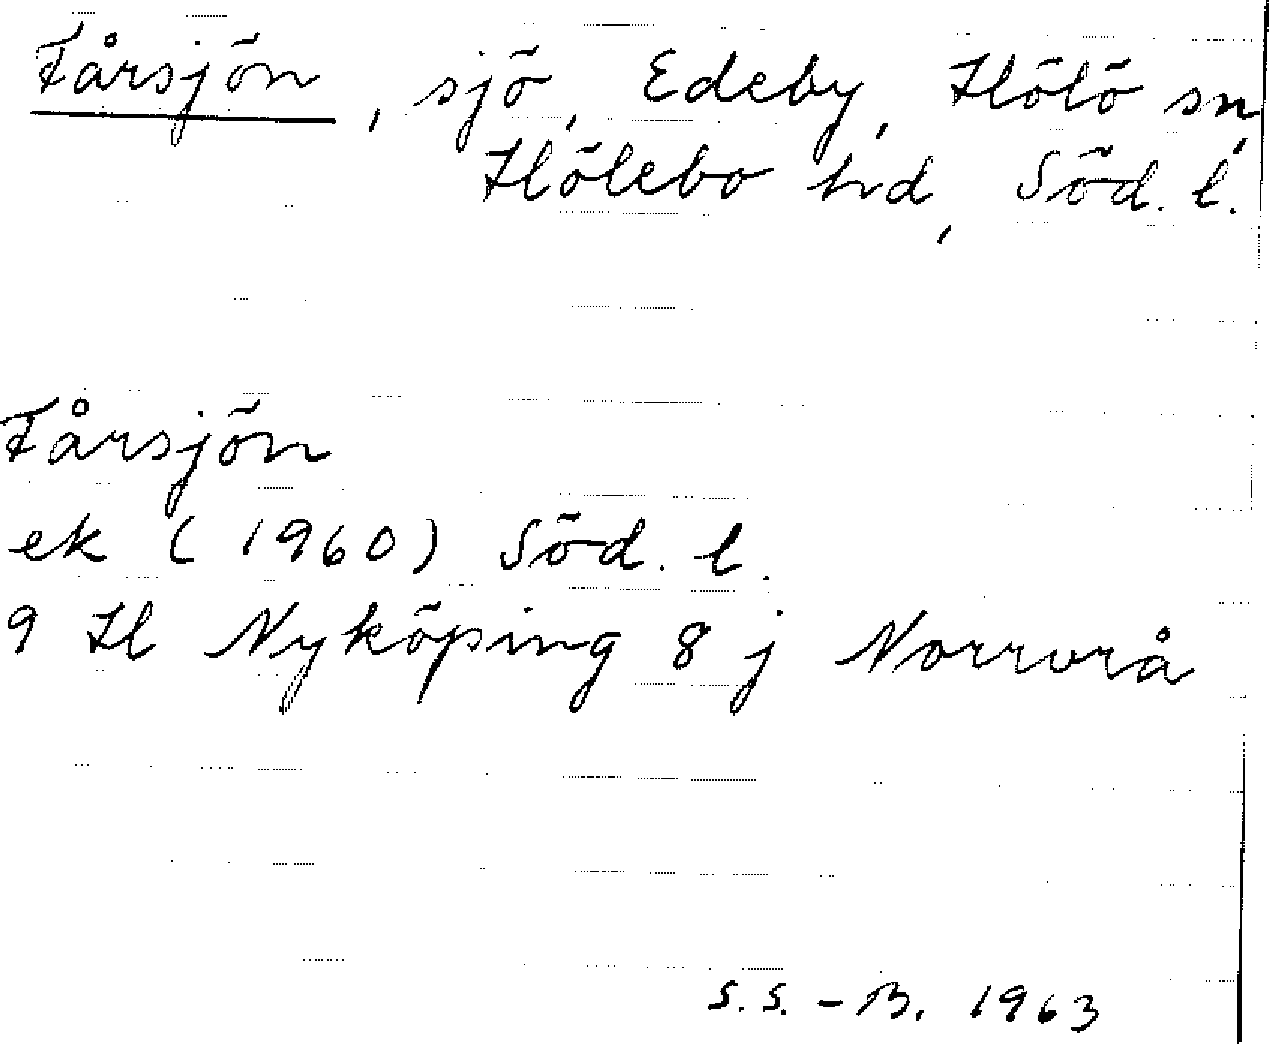 Fårsjön, sjö, Edeby, Hölö sn,
Hölebo hd, Söd. l.
Fårsjön
ek (1960) Söd. l.
9 H Nyköping 8 j Norrvrå
S.S.-B. 1963